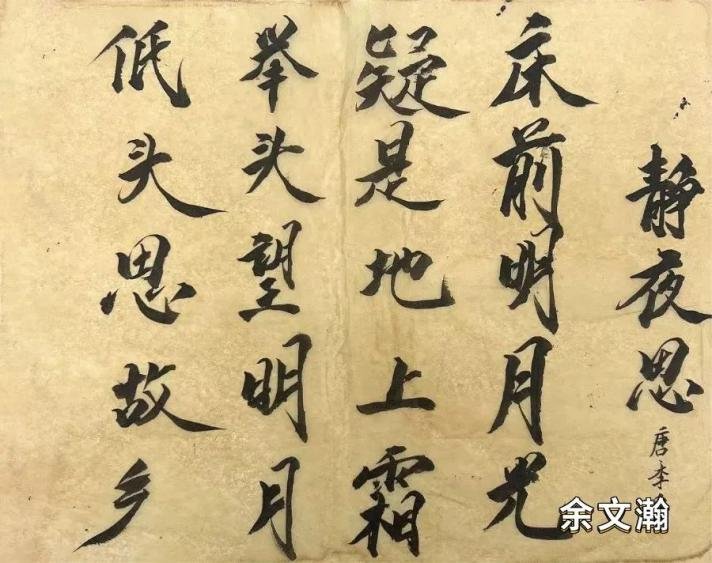 静夜思
唐李
床前明月光
疑是地上霜
举头望明月
低头思故乡
余文瀚